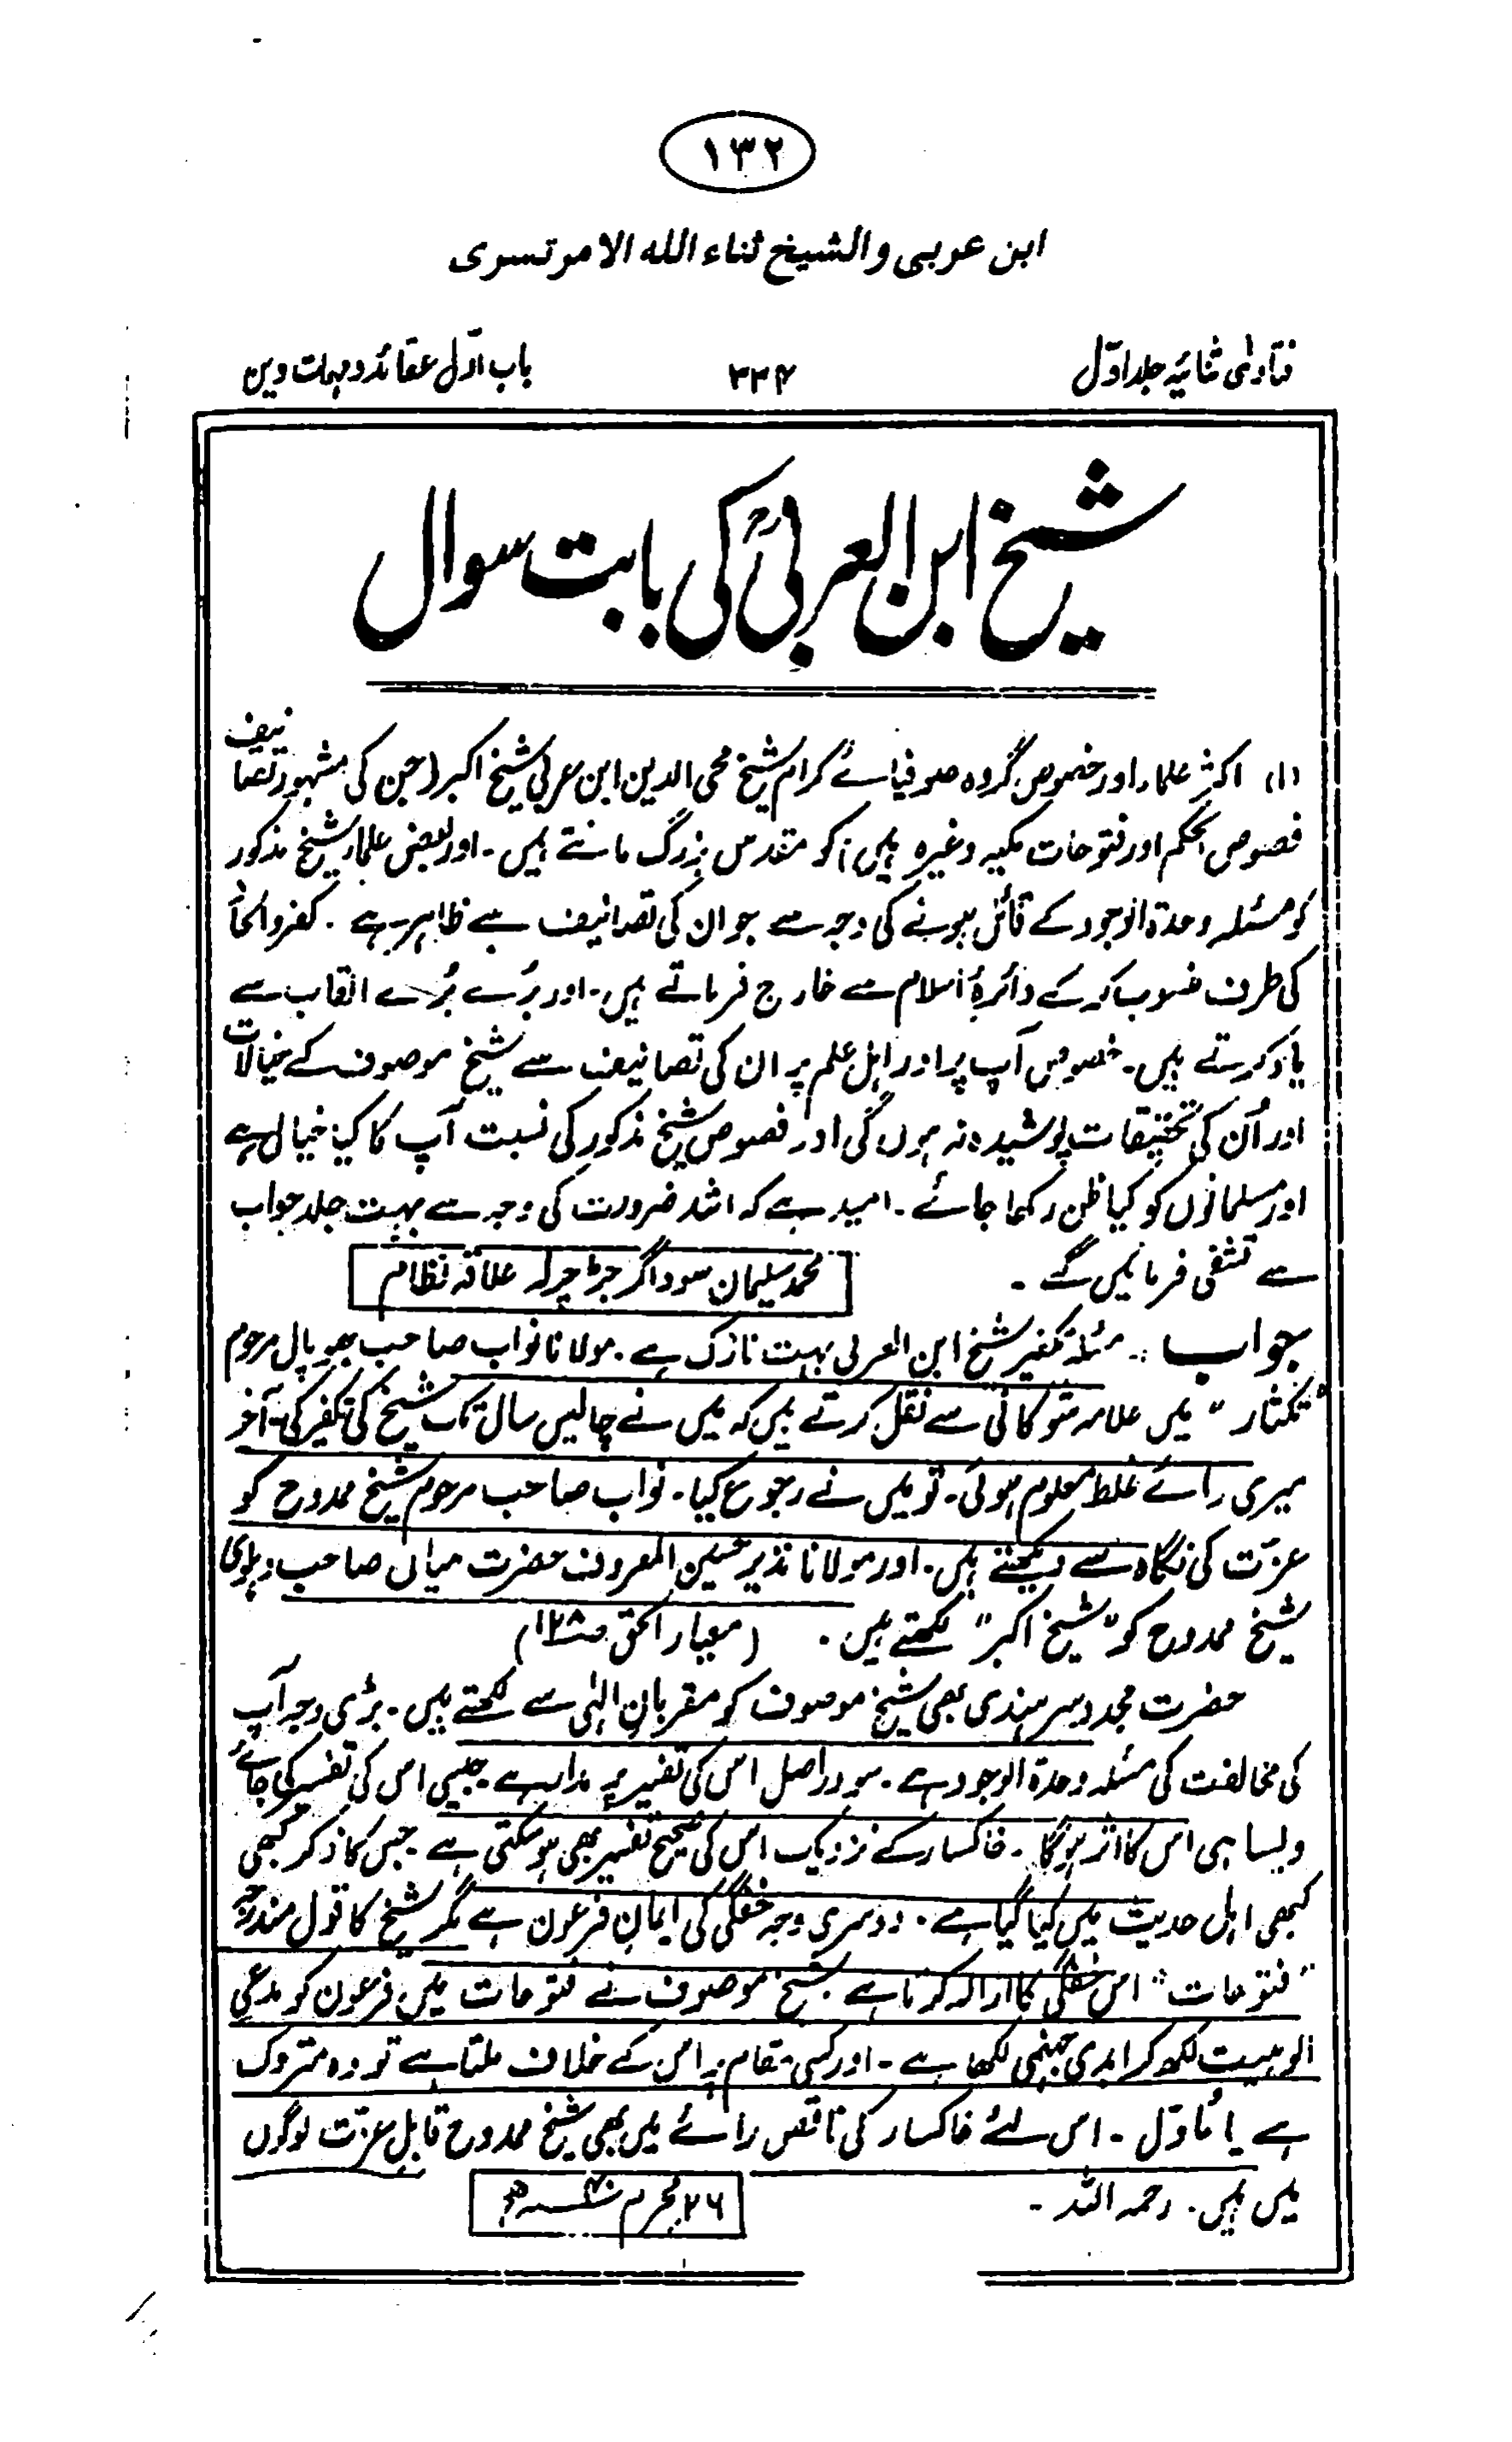 ۱۳۲
ابن عربی والشیخ ثناء الله الامرتسری
فتاوٰی ثنائیہ جلد اوّل ۳۳۴ باب اوّل عقائد و مہمات دین
شیخ ابن العربیؒ کی بابت سوال
(۱) اکثر علماء اور خصوص گروہ صوفیائے کرام شیخ محی الدین ابن عربی شیخ اکبر (جن کی مشہور تصانیف
فصوص الحکم اور فتوحات مکیہ وغیرہ ہیں) کو مقدس بزرگ مانتے ہیں۔ اور بعض علماء شیخ مذکور
کو مسئلہ وحدۃ الوجود کے قائل ہونے کی وجہ سے جو ان کی تصانیف سے ظاہر ہے۔ کفر و الحاد
کی طرف منسوب کر کے دائرۂ اسلام سے خارج فرماتے ہیں۔ اور بُرے بُرے القاب سے
یاد کرتے ہیں۔ خصوص آپ پر اور اہل علم پر ان کی تصانیف سے شیخ موصوف کے خیالات
اور اُن کی تحقیقات پوشیدہ نہ ہوں گی اور فصوص شیخ مذکور کی نسبت آپ کا کیا خیال ہے
اور مسلمانوں کو کیا ظن رکھا جائے۔ امید ہے کہ اشد ضرورت کی وجہ سے بہت جلد جواب
سے تشفی فرمائیں گے۔ محمد سلیمان سوداگر جڑچرلہ علاقہ نظام
جواب :۔ مسئلہ تکفیر شیخ ابن العربی بہت نازک ہے۔ مولانا نواب صاحب بھوپال مرحوم
"تکثار" میں علامہ شوکانی سے نقل کرتے ہیں کہ میں نے چالیس سال تک شیخ کی تکفیر کی۔ آخر
میری رائے غلط معلوم ہوئی۔ تو میں نے رجوع کیا۔ نواب صاحب مرحوم شیخ ممدوح کو
عزّت کی نگاہ سے دیکھتے ہیں۔ اور مولانا نذیر حسین المعروف حضرت میاں صاحب دہلوی
شیخ ممدوح کو "شیخ اکبر" لکھتے ہیں۔ (معیار الحق ص۱۲۸)
حضرت مجدد سرہندی بھی شیخ موصوف کو مقربانِ الٰہی سے لکھتے ہیں۔ بڑی وجہ آپ
کی مخالفت کی مسئلہ وحدۃ الوجود ہے۔ سو دراصل اس کی تفسیر پر مدار ہے۔ جیسی اس کی تفسیر کی جائے
ویسا ہی اس کا اثر ہوگا۔ خاکسار کے نزدیک اس کی صحیح تفسیر بھی ہو سکتی ہے۔ جس کا ذکر کبھی
کبھی اہل حدیث میں کیا گیا ہے۔ دوسری وجہ خفگی کی ایمانِ فرعون ہے مگر شیخ کا قول مندرجہ
"فتوحات" اس خفگی کا ازالہ کرتا ہے شیخ موصوف نے فتوحات میں فرعون کو مدعی
الوہیت لکھ کر ابدی جہنمی لکھا ہے۔ اور کسی مقام پر اس کے خلاف ملتا ہے تو وہ متروک
ہے یا مأوّل۔ اس لئے خاکسار کی ناقص رائے میں بھی شیخ ممدوح قابلِ عزّت لوگوں
میں ہیں۔ رحمہ اللہ۔ ۲۶ محرم